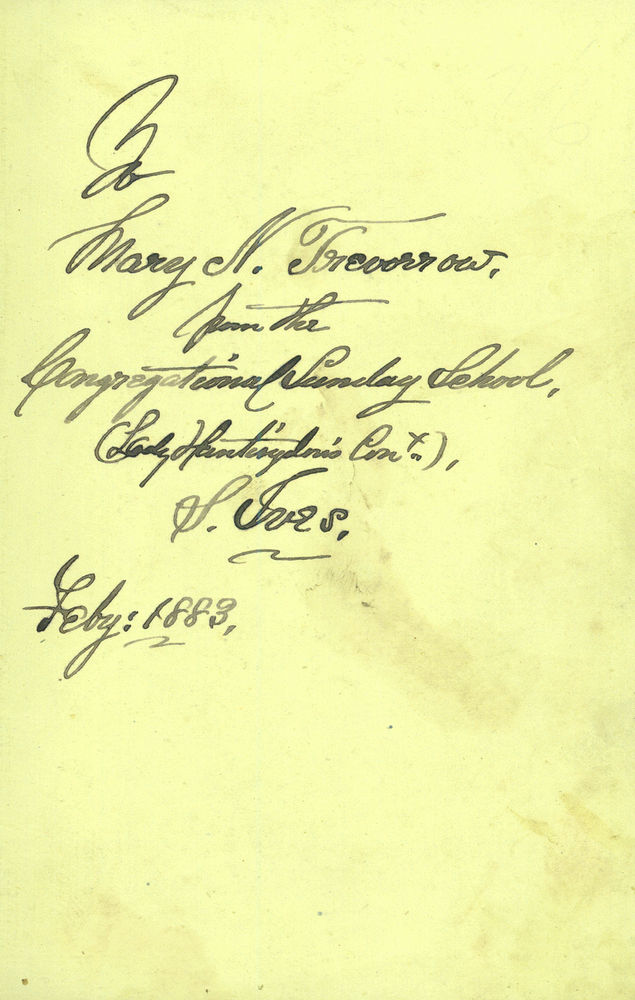 To
Mary N. Trevorrow.
from the
Congregational Sunday School,
(Lady Huntingdon's Conx.),
S. Ives.
Feby: 1883.